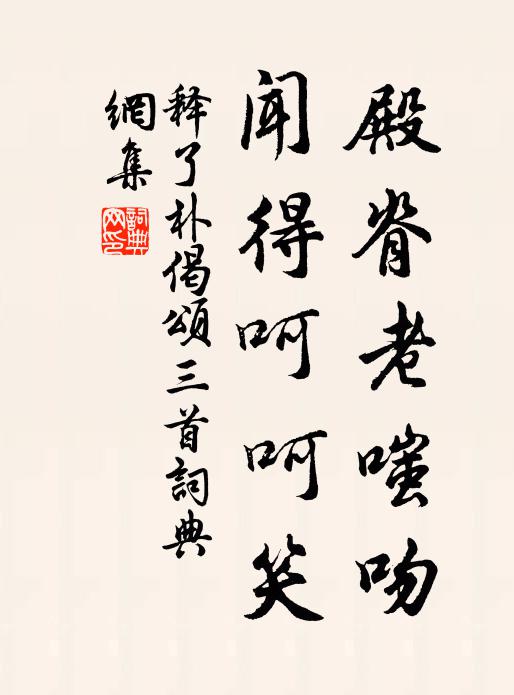 殿脊老嗤吻
闻得呵呵笑
释了朴偈頌三首詞典
網集
詞典网印